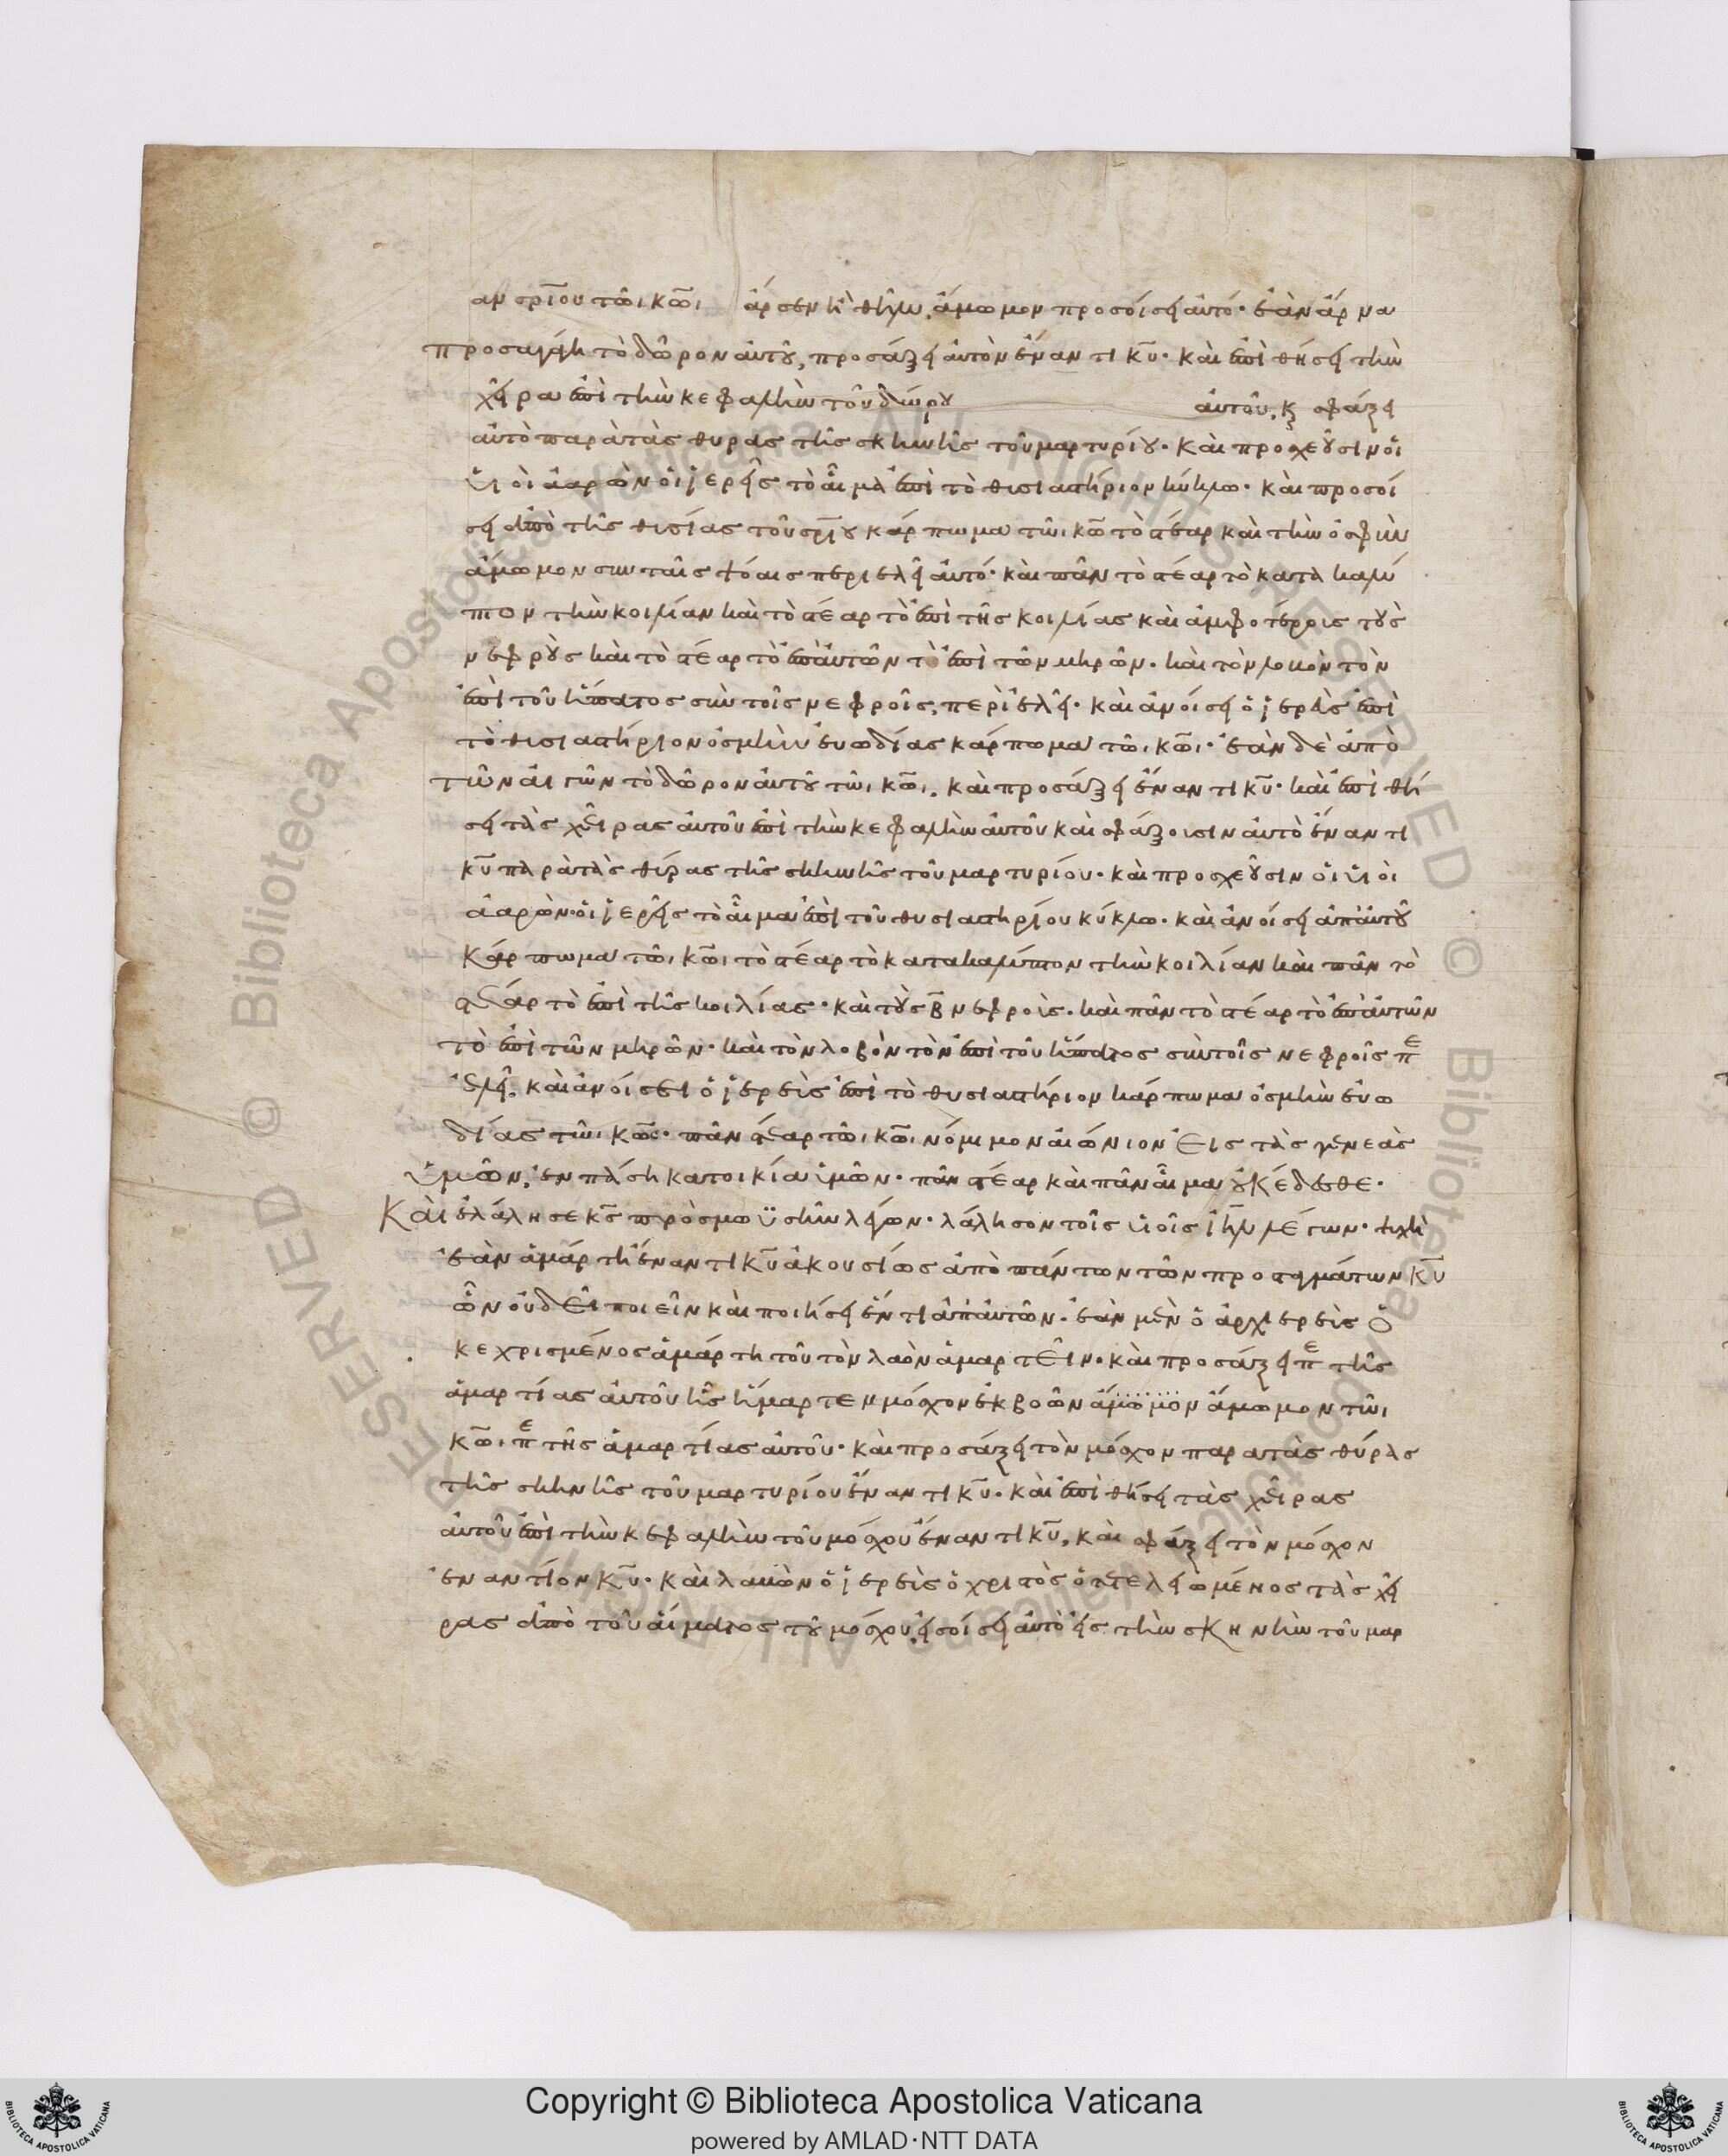 αν σρ̅ιον τῶι κω̅ι ἄρσεν ἢ θῆλυ, ἄμωμον προσοίσει αὐτό· ἐὰν ἄρνα
προσαγάγη τὸ δῶρον αὐτοῦ, προσάξει αὐτὸν ἔναντι κυ̅· καὶ ἐπιθήσει τὴν
χεῖρα ἐπὶ τὴν κεφαλὴν τοῦ δώρου αὐτοῦ, κ σφάξει
αὐτὸ παρὰ τὰς θυρὰς τῆς σκηνῆς τοῦ μαρτυρίου· καὶ προσχεοῦσιν οἱ
ὑιοὶ ἀαρὼν οἱ ἱερεῖς τὸ αἷμα ἐπὶ τὸ θυσιαστήριον κύκλω· καὶ προσοί
σει ἀπὸ τῆς θυσίας τοῦ σρ̅ιου κάρπωμα τῶι κω̅ τὸ στέαρ καὶ τὴν ὀσφὺν
ἄμωμον συν ταῖς ψόαις περιελεῖ αὐτό· καὶ πᾶν τὸ στέαρ τὸ κατακαλύ
πτον τὴν κοιλίαν καὶ τὸ στέαρ τὸ ἐπὶ τῆς κοιλίας καὶ ἀμφοτέροις τοὺς
νεφροὺς καὶ τὸ στέαρ τὸ ἐπ αὐτῶν τὸ ἐπὶ τῶν μηρῶν· καὶ τὸν λοβὸν τὸν
ἐπὶ τοῦ ἥπατος σὺν τοῖς νεφροῖς, περιελεῖ· καὶ ἀνοίσει ὁ ἱερεὺς ἐπὶ
τὸ θυσιαστήριον ὀσμὴν ἐυωδίας κάρπωμα τῶι κω̅ι· ἐὰν δὲ ἀπὸ
τῶν αἰγῶν τὸ δῶρον αὐτοῦ τῶι κω̅ι, καὶ προσάξει ἔναντι κυ̅· καὶ ἐπιθή
σει τὰς χεῖρας αὐτοῦ ἐπὶ τὴν κεφαλὴν αὐτοῦ καὶ σφάξουσιν αὐτὸ ἔναντι
κυ̅ παρὰ τὰς θύρας τῆς σκηνῆς τοῦ μαρτυρίου· καὶ προσχεοῦσιν οἱ ὑιοὶ
ἀαρών· οἱ ἱερεῖς τὸ αἷμα ἐπὶ τοῦ θυσιαστηρίου κύκλω· καὶ ἀνοίσει ἀπ αὐτοῦ
κάρπωμα τῶι κω̅ι τὸ στέαρ τὸ κατακαλύπτον τὴν κοιλίαν καὶ πᾶν τὸ
στέαρ τὸ ἐπὶ τῆς κοιλίας· καὶ τοὺς β̅ νεφροὺς· καὶ πᾶν τὸ στέαρ τὸ ἐπ αὐτῶν
τὸ ἐπὶ τῶν μηρῶν· καὶ τὸν λοβὸν τὸν ἐπὶ τοῦ ἥπατος σὺν τοῖς νεφροῖς πε
ἑλεῖ, καὶ ἀνοίσει ὁ ἱερεὺς ἐπὶ τὸ θυσιαστήριον κάρπωμα ὀσμὴν ἐυω
δίας τῶι κω̅ι· πᾶν στέαρ τῶι κω̅ι νόμιμον αἰώνιον εἰς τὰς γενεὰς
ὑμῶν, ἐν πάση κατοικία ὑμῶν· πᾶν στέαρ καὶ πᾶν αἷμα οὐκ έδεσθε·
Καὶ ἐλάλησε κς̅ πρὸς μωϋσῆν λέγων· λάλησον τοῖς ὑιοῖς ιη̅λ λέγων· ψυχὴ
ἐὰν ἁμάρτη ἔναντι κυ̅ ἀκουσίως ἀπὸ πάντων τῶν προσταγμάτων κυ̅
ὧν οὐ δεῖ ποιεῖν καὶ ποιήσει ἔν τι ἀπ αὐτῶν· ἐὰν μὲν ὁ ἀρχιερεὺς ὁ
κεχρισμένος ἁμάρτη τοῦ τὸν λαὸν ἁμαρτεῖν· καὶ προσάξει πε τῆς
ἁμαρτίας αὐτοῦ ἧς ἥμαρτεν μόσχον ἐκ βοῶν ἄμωμον ἄμωμον τῶι
κω̅ι πε τῆς ἁμαρτίας αὐτοῦ· καὶ προσάξει τὸν μόσχον παρα τὰς θύρας
τῆς σκηνῆς τοῦ μαρτυρίου ἔναντι κυ̅· καὶ ἐπιθήσει τὰς χεῖρας
αὐτοῦ ἐπὶ τὴν κεφαλὴν τοῦ μόσχου ἔναντι κυ̅, καὶ σφάξει τὸν μόσχον
ἐναντίον κυ̅· καὶ λαβὼν ὁ ἱερεὺς ὁ χριστὸς ὁ τετελειωμένος τὰς χεῖ
ρας ἀπὸ τοῦ αἵματος τοῦ μόσχου, εἰσοίσει αὐτὸ εἰς τὴν σκηνὴν τοῦ μαρ
Copyright © Biblioteca Apostolica Vaticana
powered by AMLAD·NTT DATA